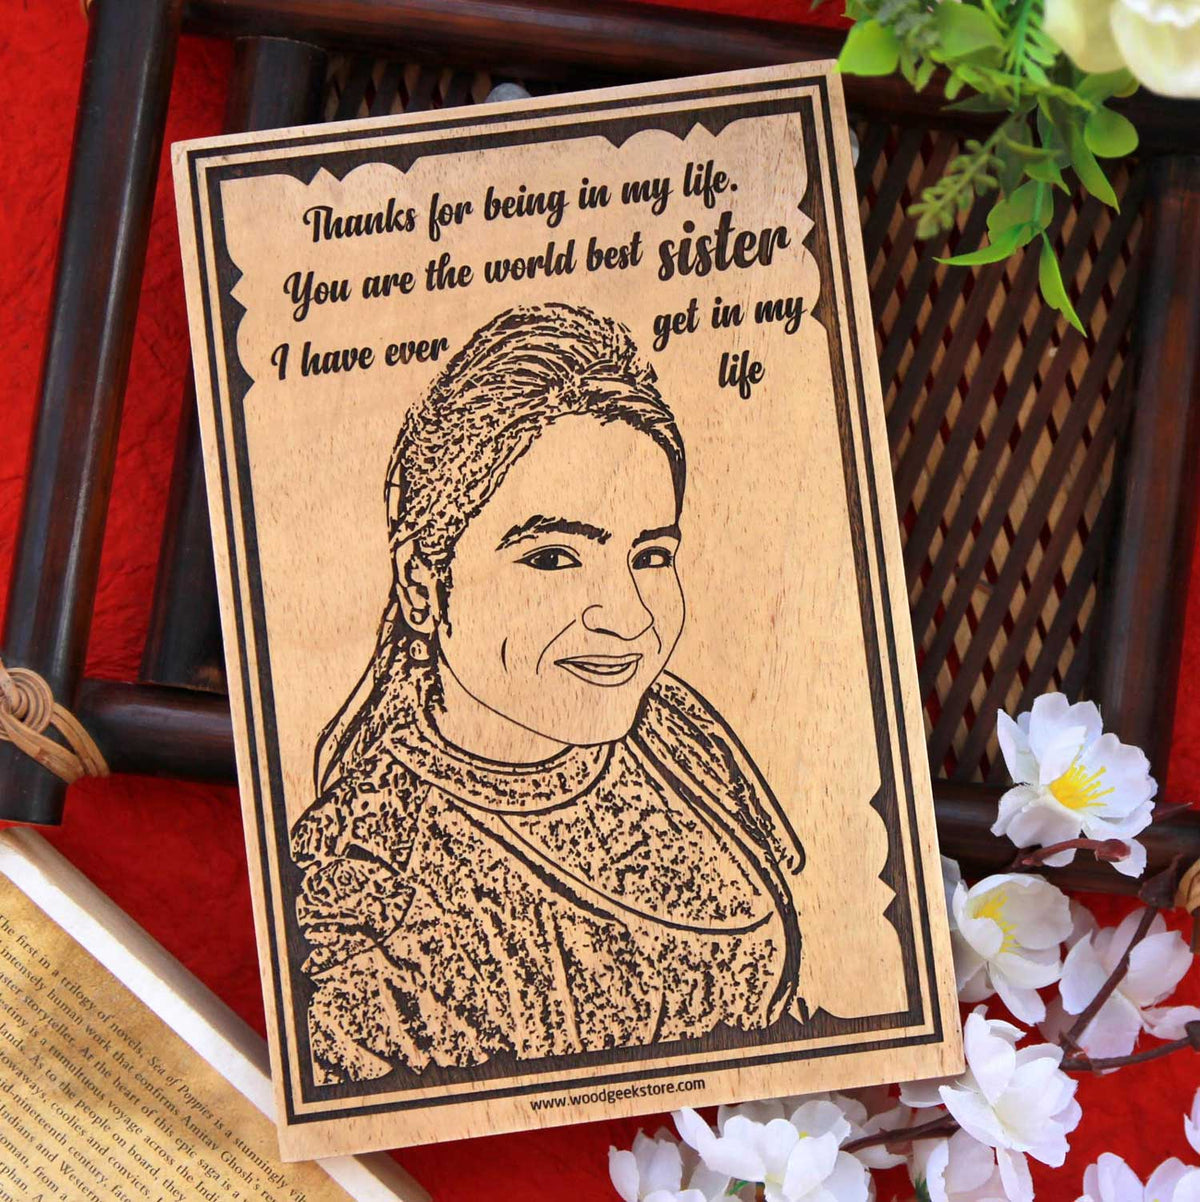 Thanks for being in my life.
You are the world best sister
I have ever get in my
life
www.woodgeekstore.com
The first in a trilogy of novels, Sea of Poppies is a stunningly
intensely human work that confirms Amitav Ghosh's
storyteller. At the heart of this epic saga is a
destiny is a tumultuous voyage across the Indi
As to the people on board, they
coolies and convicts,
nineteenth century,
from a